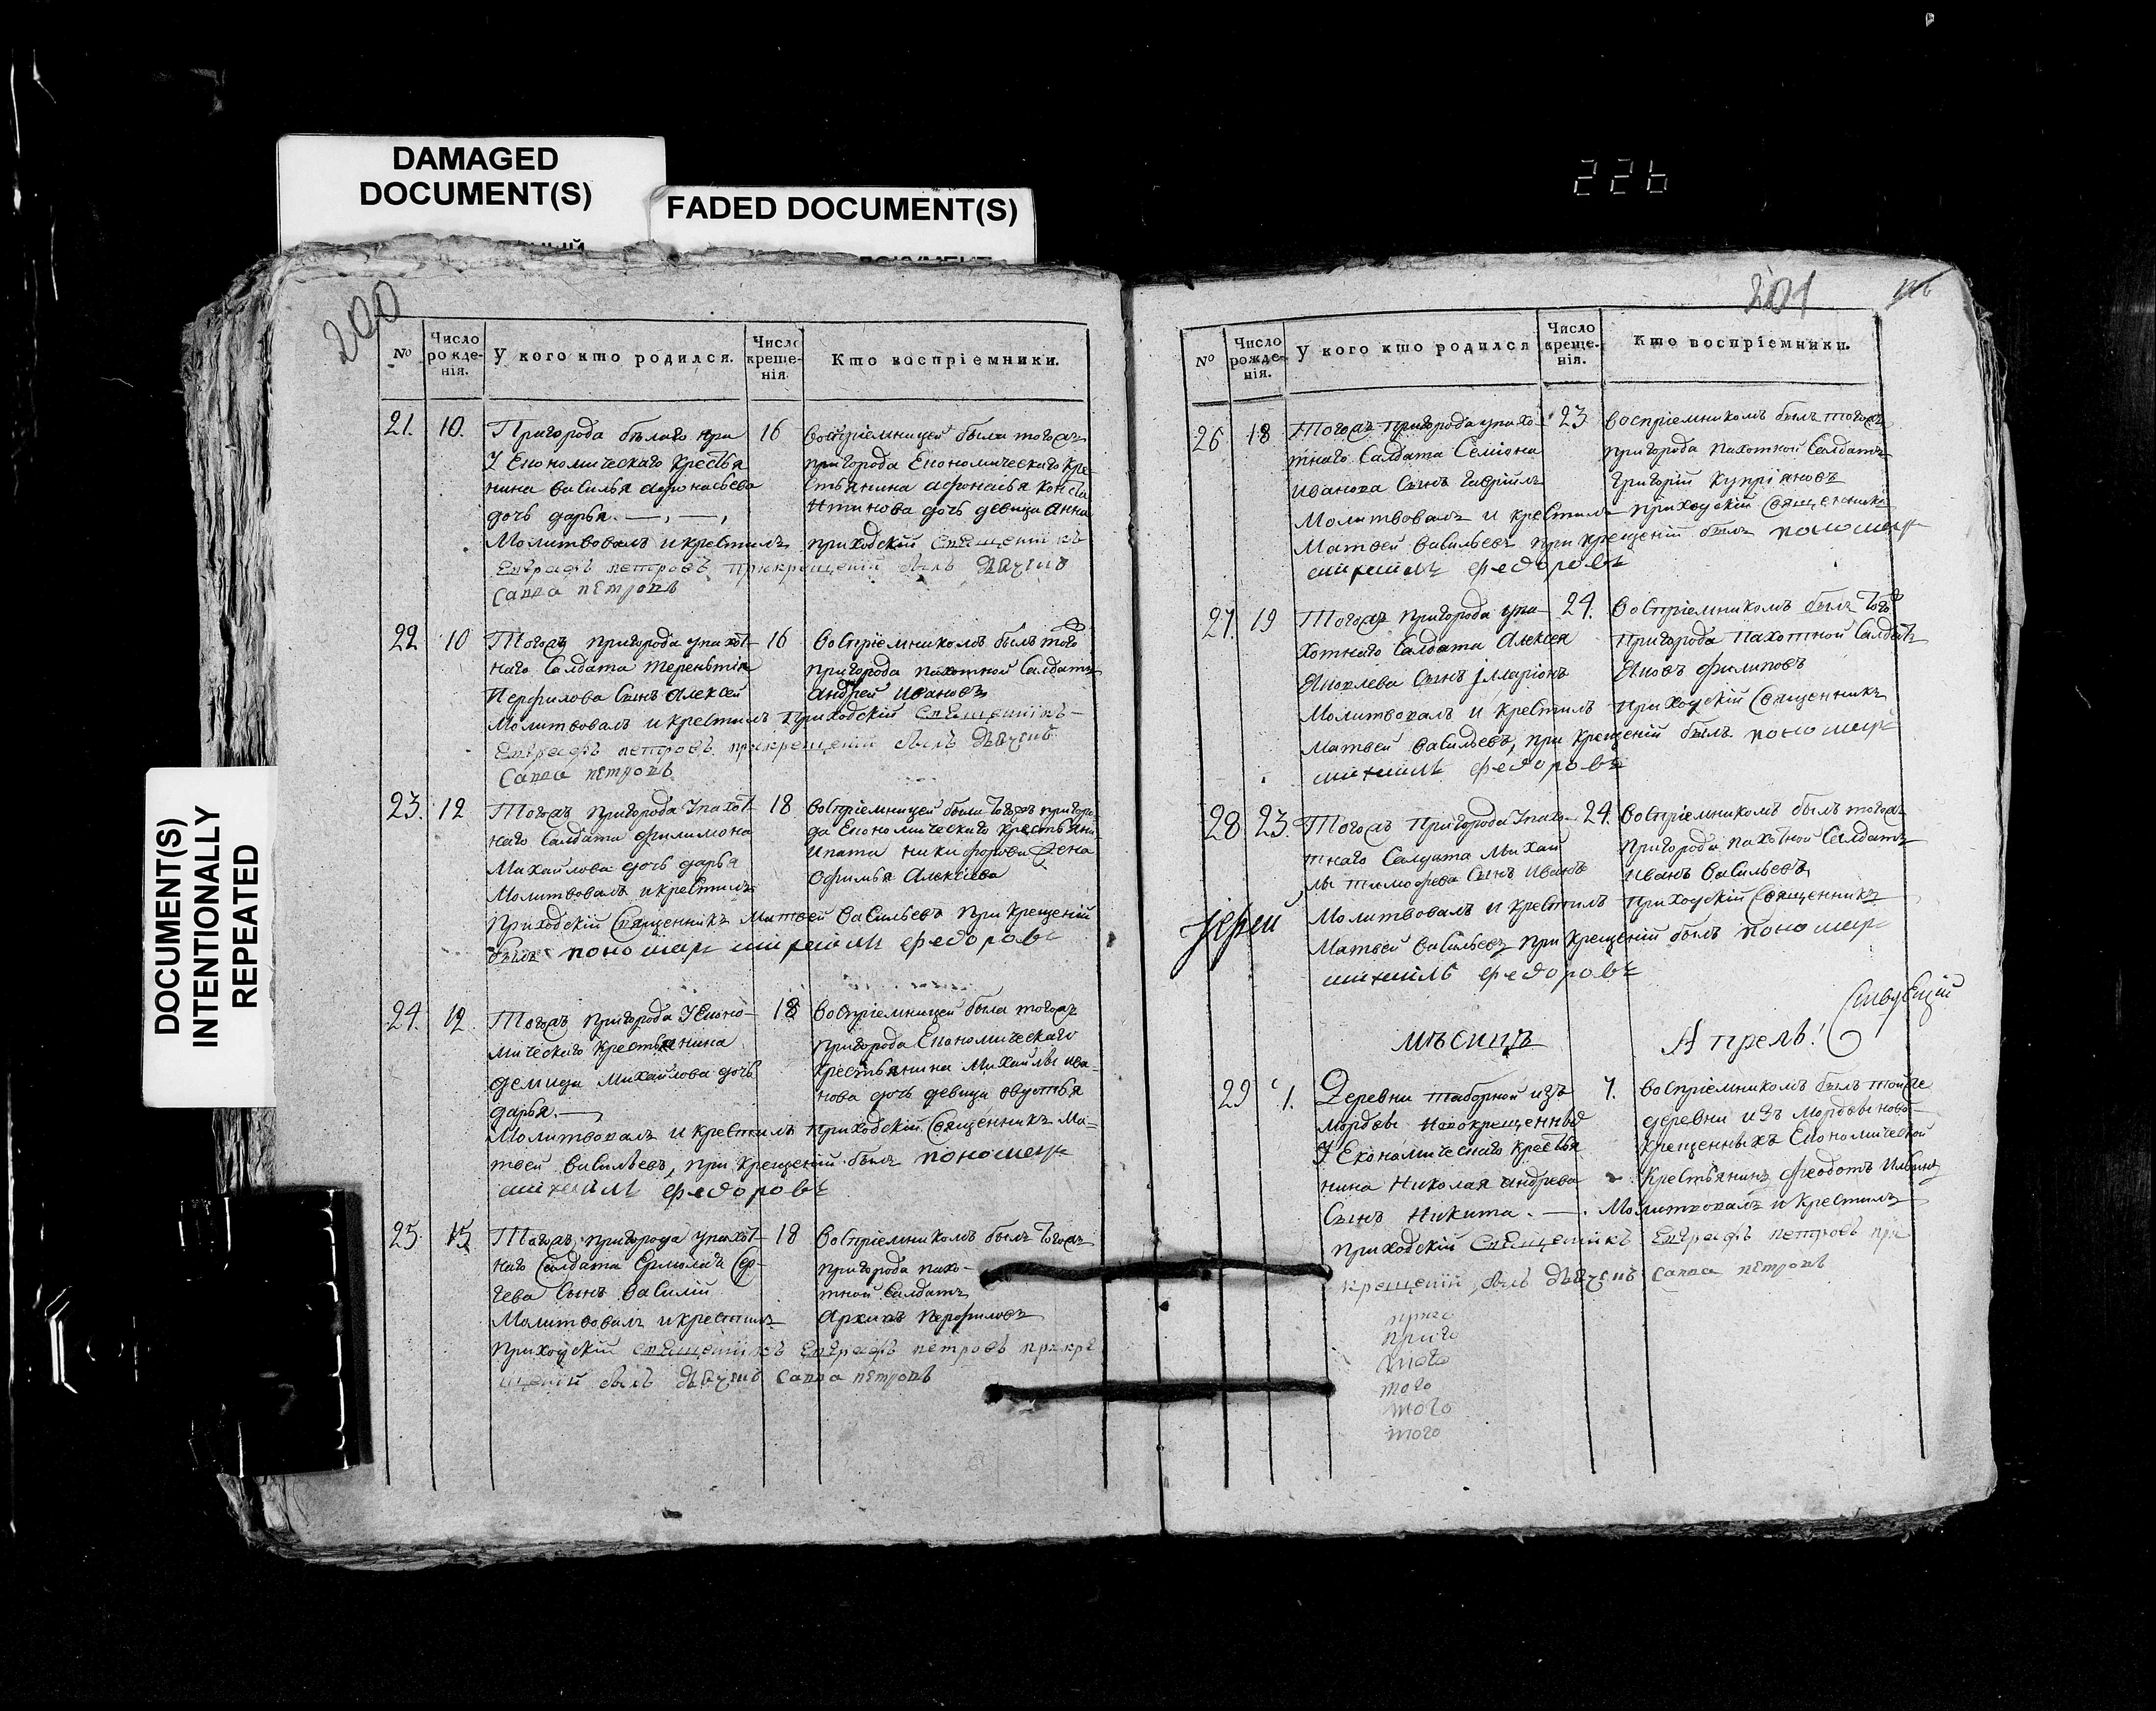 DAMAGED
DOCUMENT(S)
FADED DOCUMENT(S)
226
DOCUMENT(S)
INTENTIONALLY
REPEATED
200
№
Число рожденія.
У кого кто родился.
Число крещенія
Кто воспріемники.
21. 10.
Пригорода бѣлаго яра
У Економическаго Кресть я
нина василья афонасьева
дочь дарья.
Молитвовалъ и крестилъ
16
воспріемницей была тогожъ
пригорода Економическаго кре
стьянина афонасья конста
нтинова дочь девица анна
приходскій священникъ
Евграфъ петровъ при крещеніи былъ дьячекъ
савва петровъ
22 10
Тогожъ пригорода у пахот
наго Салдата терентія
Перфилова Сынъ алексей
16
воспріемникомъ былъ того
пригорода пахотной Салдатъ
андрей ивановъ
молитвовалъ и крестилъ приходскій священникъ
Евграфъ петровъ при крещеніи былъ дьячекъ
Савва петровъ
23. 12
Тогожъ пригорода У пахот
наго Салдата филимона
Михайлова дочь дарья
Молитвовалъ и крестилъ
18
воспріемницей была тогожъ пригоро
да Економическаго крестьяни
ипата никифорова жена
офимья алексеева
Приходскій Священникъ Матвей васильевъ При Крещеніи
былъ пономарь михаилъ федоровъ
24. 12
Тогожъ пригорода У Еконо-
мическаго крестьянина
демида Михайлова дочь
дарья.
18
воспріемницей была тогожъ
пригорода Економическаго
крестьянина Михайлы ива-
нова дочь девица
Молитвовалъ и крестилъ приходскій Священникъ Ма-
твей васильевъ, при крещеніи былъ пономарь
михаилъ федоровъ
25. 15
Тогожъ пригорода у пахот
наго Салдата Ермолая Сер-
геева Сынъ василій
Молитвовалъ и крестилъ
18
воспріемникомъ былъ тогожъ
пригорода пахо-
тной Салдатъ
Архипъ Перфиловъ
Приходскій священникъ Евграфъ петровъ при кре
щеніи былъ дьячекъ Савва петровъ
201
№
Число рожденія.
У кого кто родился
Число крещенія.
Кто воспріемники.
26 18
Тогожъ пригорода у пахо
тнаго Салдата Семіона
иванова Сынъ гавріилъ
23
воспріемникомъ былъ тогожъ
пригорода пахотной Салдатъ
григорій купріяновъ
Молитвовалъ и крестилъ приходскій Священникъ
Матвей васильевъ при крещеніи былъ пономарь
михаилъ федоровъ
27. 19
Тогожъ пригорода у па-
хотнаго Салдата Алексея
Яковлева Сынъ іларіонъ
24.
воспріемникомъ былъ того
пригорода пахотной Салдатъ
Яковъ филиповъ
Молитвовалъ и крестилъ приходскій Священникъ
Матвей васильевъ, при крещеніи былъ пономарь
михаилъ федоровъ
28. 23.
Тогожъ пригорода У пахо-
тнаго Салдата Михай
лы тимофеева Сынъ иванъ
24.
воспріемникомъ былъ тогожъ
пригорода пахотной Салдатъ
иванъ васильевъ
Молитвовалъ и крестилъ приходскій Священникъ
Іерей
Матвей васильевъ при крещеніи былъ пономарь
михаилъ федоровъ
мѣсяцъ Апрель!
29 1.
Деревни таборной изъ
мордвы новокрещенныхъ
У Економическаго кресть я
нина Николая андреева
Сынъ Никита.
7.
воспріемникомъ былъ тойже
деревни изъ мордвы ново-
крещенныхъ Економической
крестьянинъ феодотъ ильинъ
Молитвовалъ и крестилъ
приходскій священникъ Евграфъ петровъ при
крещеніи былъ дьячекъ Савва петровъ
того
того
того
того